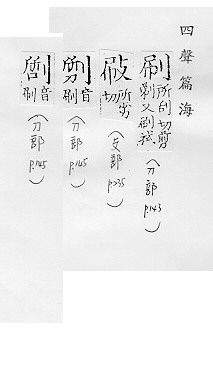 四聲篇海
刷 所刮切剪
又刷拭
(刀部 p.143)
所劣
切
(部 p.235)
音
刷
(刀部 p.145)
音
刷
(刀部 p.145)